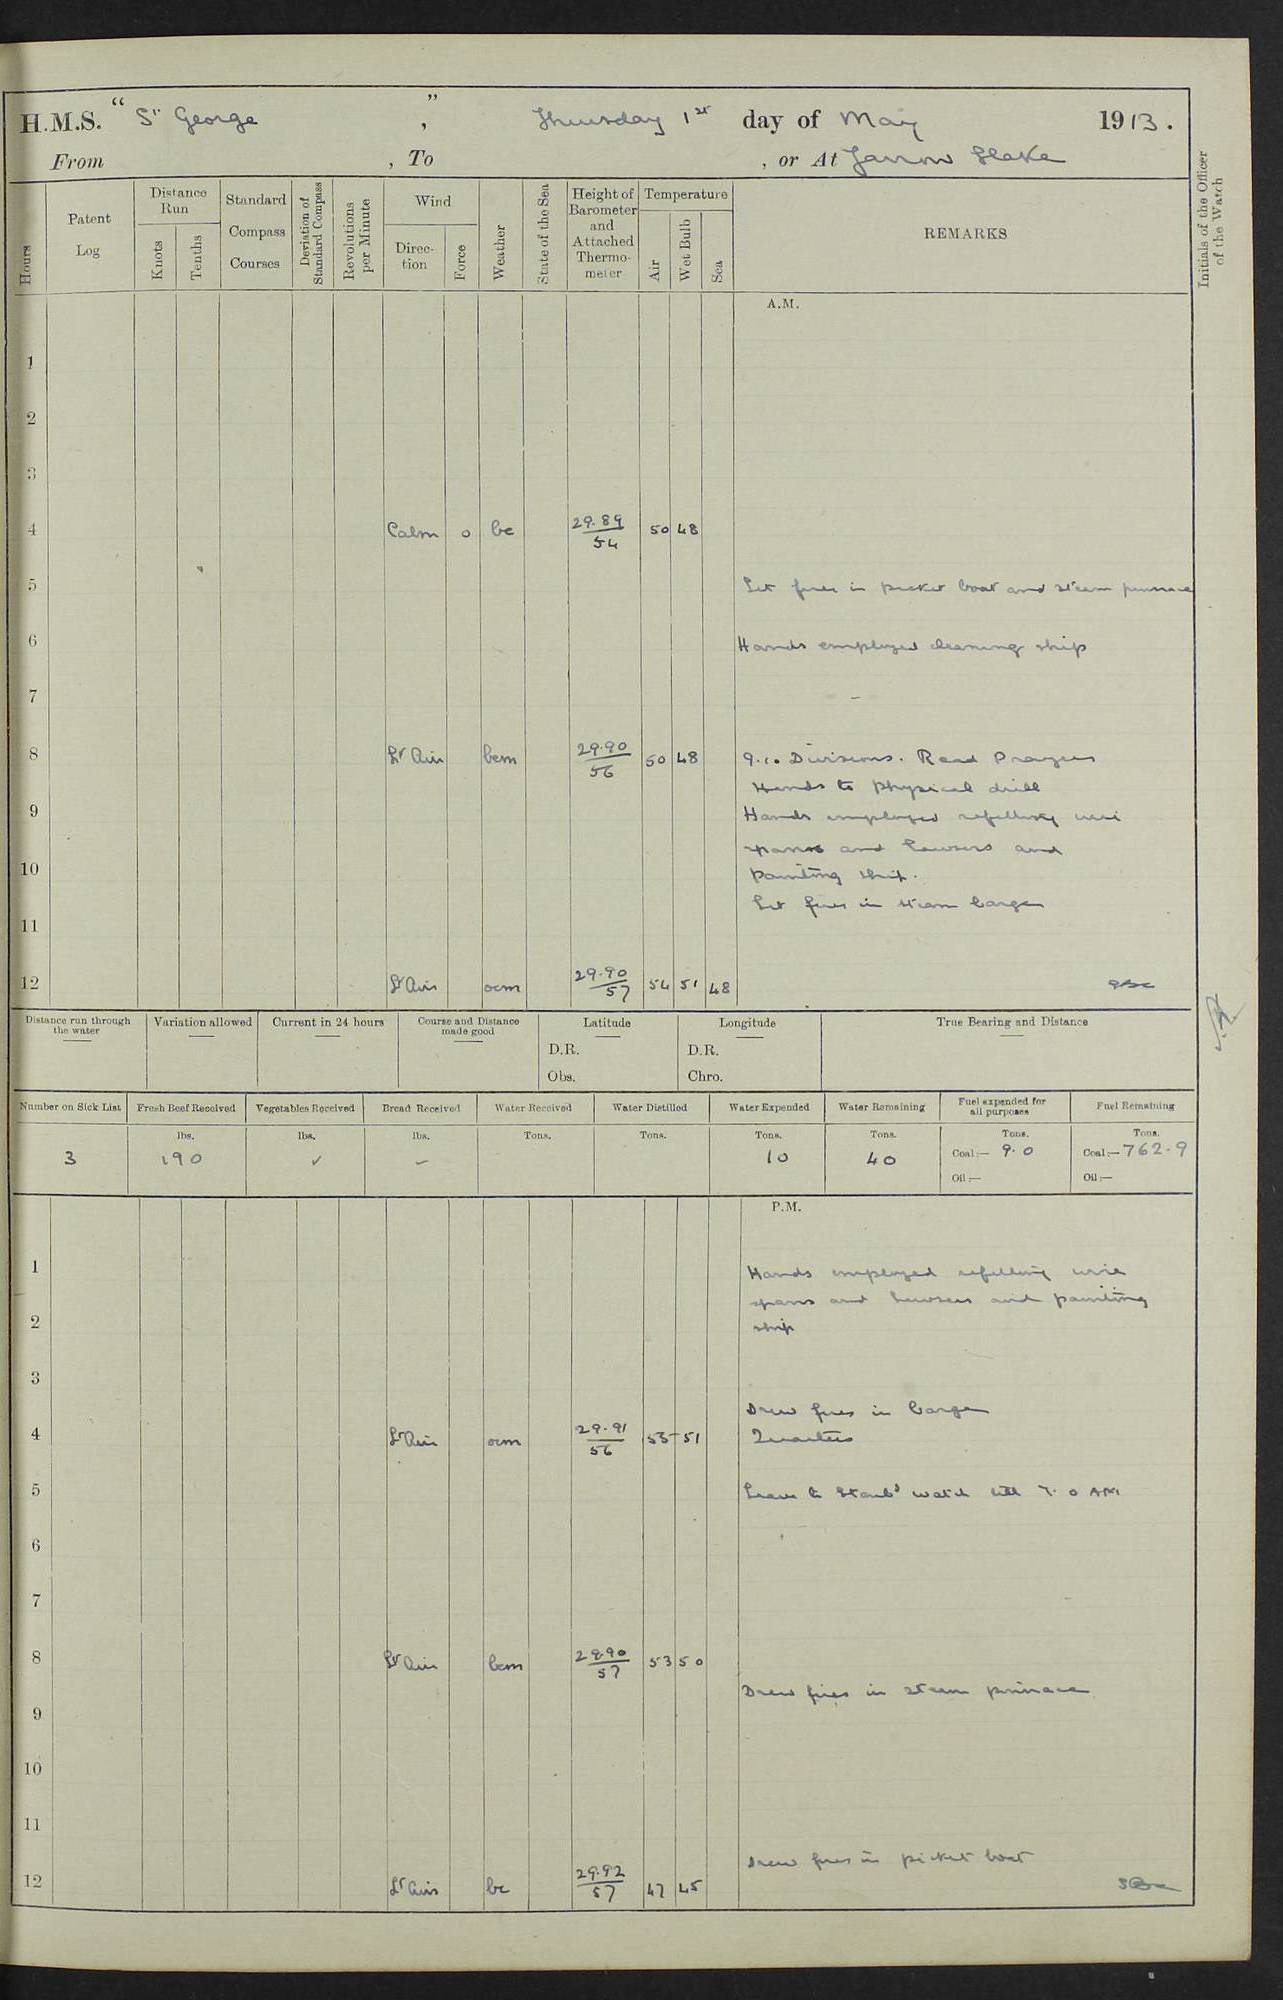 H.M.S. "St George", Thursday 1st day of May 1913.
From , To , or At Jarrow Slake
Hours
Patent Log
Distance Run
Knots
Tenths
Standard Compass Courses
Deviation of Standard Compass
Revolutions per Minute
Wind
Direction
Force
Weather
State of the Sea
Height of Barometer and Attached Thermometer
Temperature
Air
Wet Bulb
Sea
REMARKS
Initials of the Officer of the Watch
A.M.
1
2
3
4 Calm 0 bc 29.89/54 50 48
5 Let fires in picket boat and steam pinnace
6 Hands employed cleaning ship
7
8 Lt Airs bcm 29.90/56 50 48 9.10 Divisions. Read Prayers
Hands to physical drill
9 Hands employed refitting wire
spans and hawsers and
10 painting ship.
Let fires in steam barge
11
12 Lt Airs ocm 29.90/57 54 51 48
Distance run through the water
Variation allowed
Current in 24 hours
Course and Distance made good
Latitude
D.R.
Obs.
Longitude
D.R.
Chro.
True Bearing and Distance
Number on Sick List
Fresh Beef Received
Vegetables Received
Bread Received
Water Received
Water Distilled
Water Expended
Water Remaining
Fuel expended for all purposes
Fuel Remaining
lbs. lbs. lbs. Tons. Tons. Tons. Tons. Tons. Tons.
3 190 ✓ – 10 40 Coal:— 9.0 Coal:— 762.9
Oil:— Oil:—
P.M.
1 Hands employed refitting wire
spans and hawsers and painting
2 ship
3
Drew fires in barge
4 Lt Airs ocm 29.91/56 53 51 Quarters
5 Leave to Starbd watch till 7.0 AM
6
7
8 Lt Airs bcm 29.90/57 53 50
Drew fires in steam pinnace
9
10
11
Drew fires in picket boat
12 Lt Airs bc 29.92/57 47 45